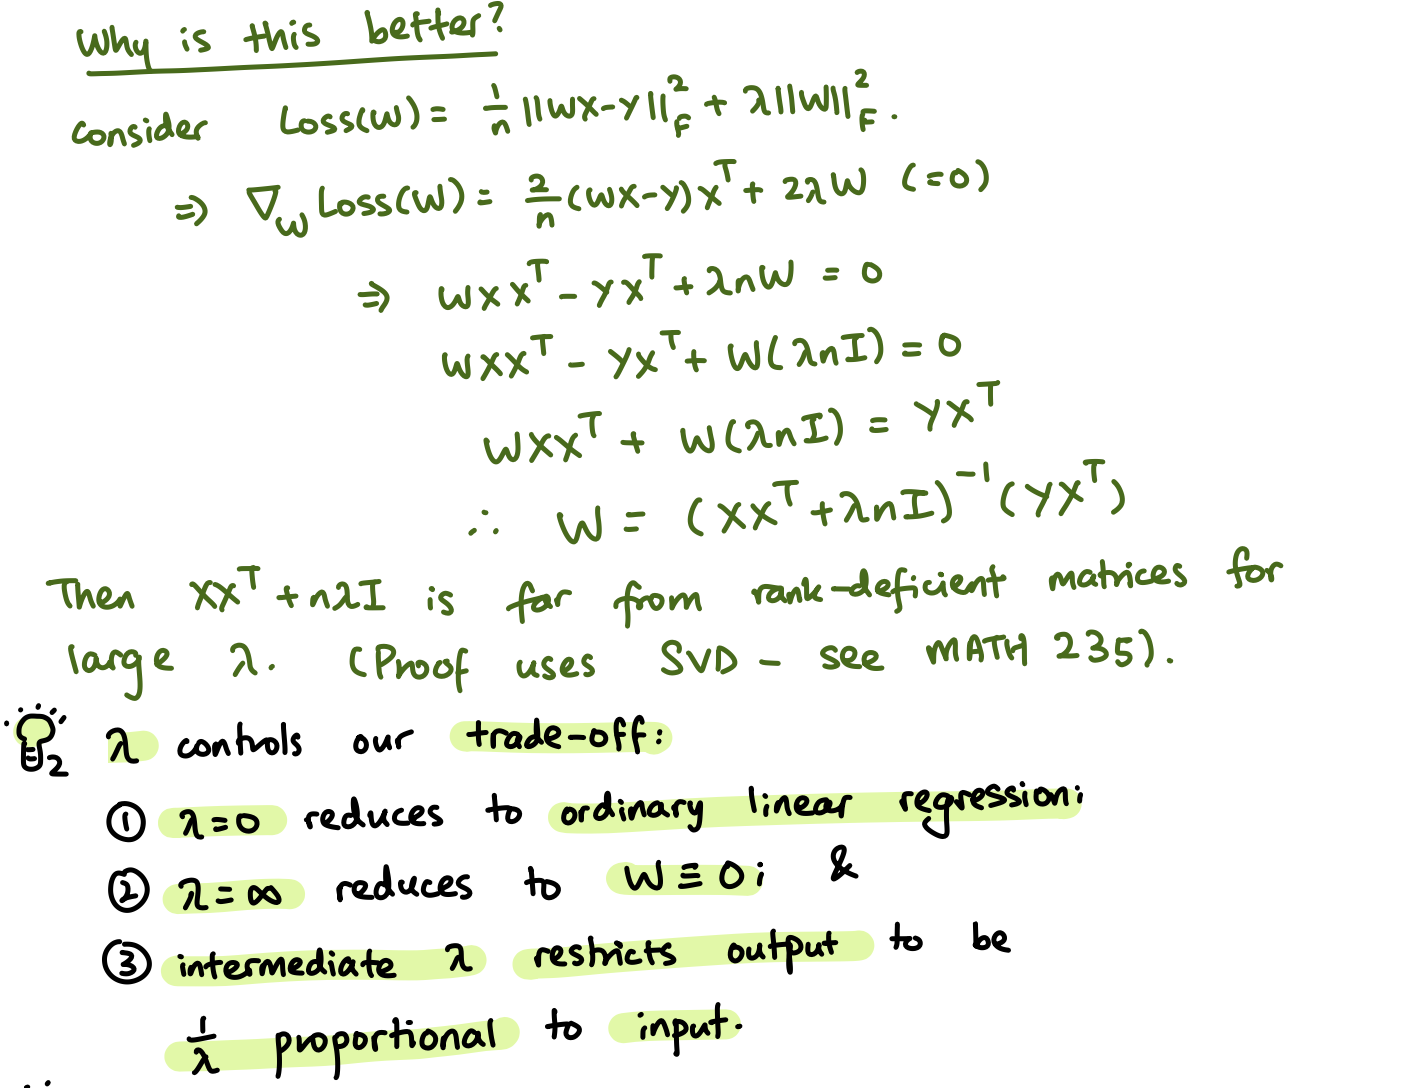 Why is this better?
consider Loss(W) = 1/n ||WX-Y||²_F + λ||W||²_F.
⇒ ∇_W Loss(W) = 2/n (WX-Y)X^T + 2λW (=0)
⇒ WXX^T - YX^T + λnW = 0
WXX^T - YX^T + W(λnI) = 0
WXX^T + W(λnI) = YX^T
∴ W = (XX^T + λnI)^-1 (YX^T)
Then XX^T + nλI is far from rank-deficient matrices for
large λ. (Proof uses SVD - see MATH 235).
2 λ controls our trade-off:
① λ=0 reduces to ordinary linear regression;
② λ=∞ reduces to W≡0; &
③ intermediate λ restricts output to be
1/λ proportional to input.